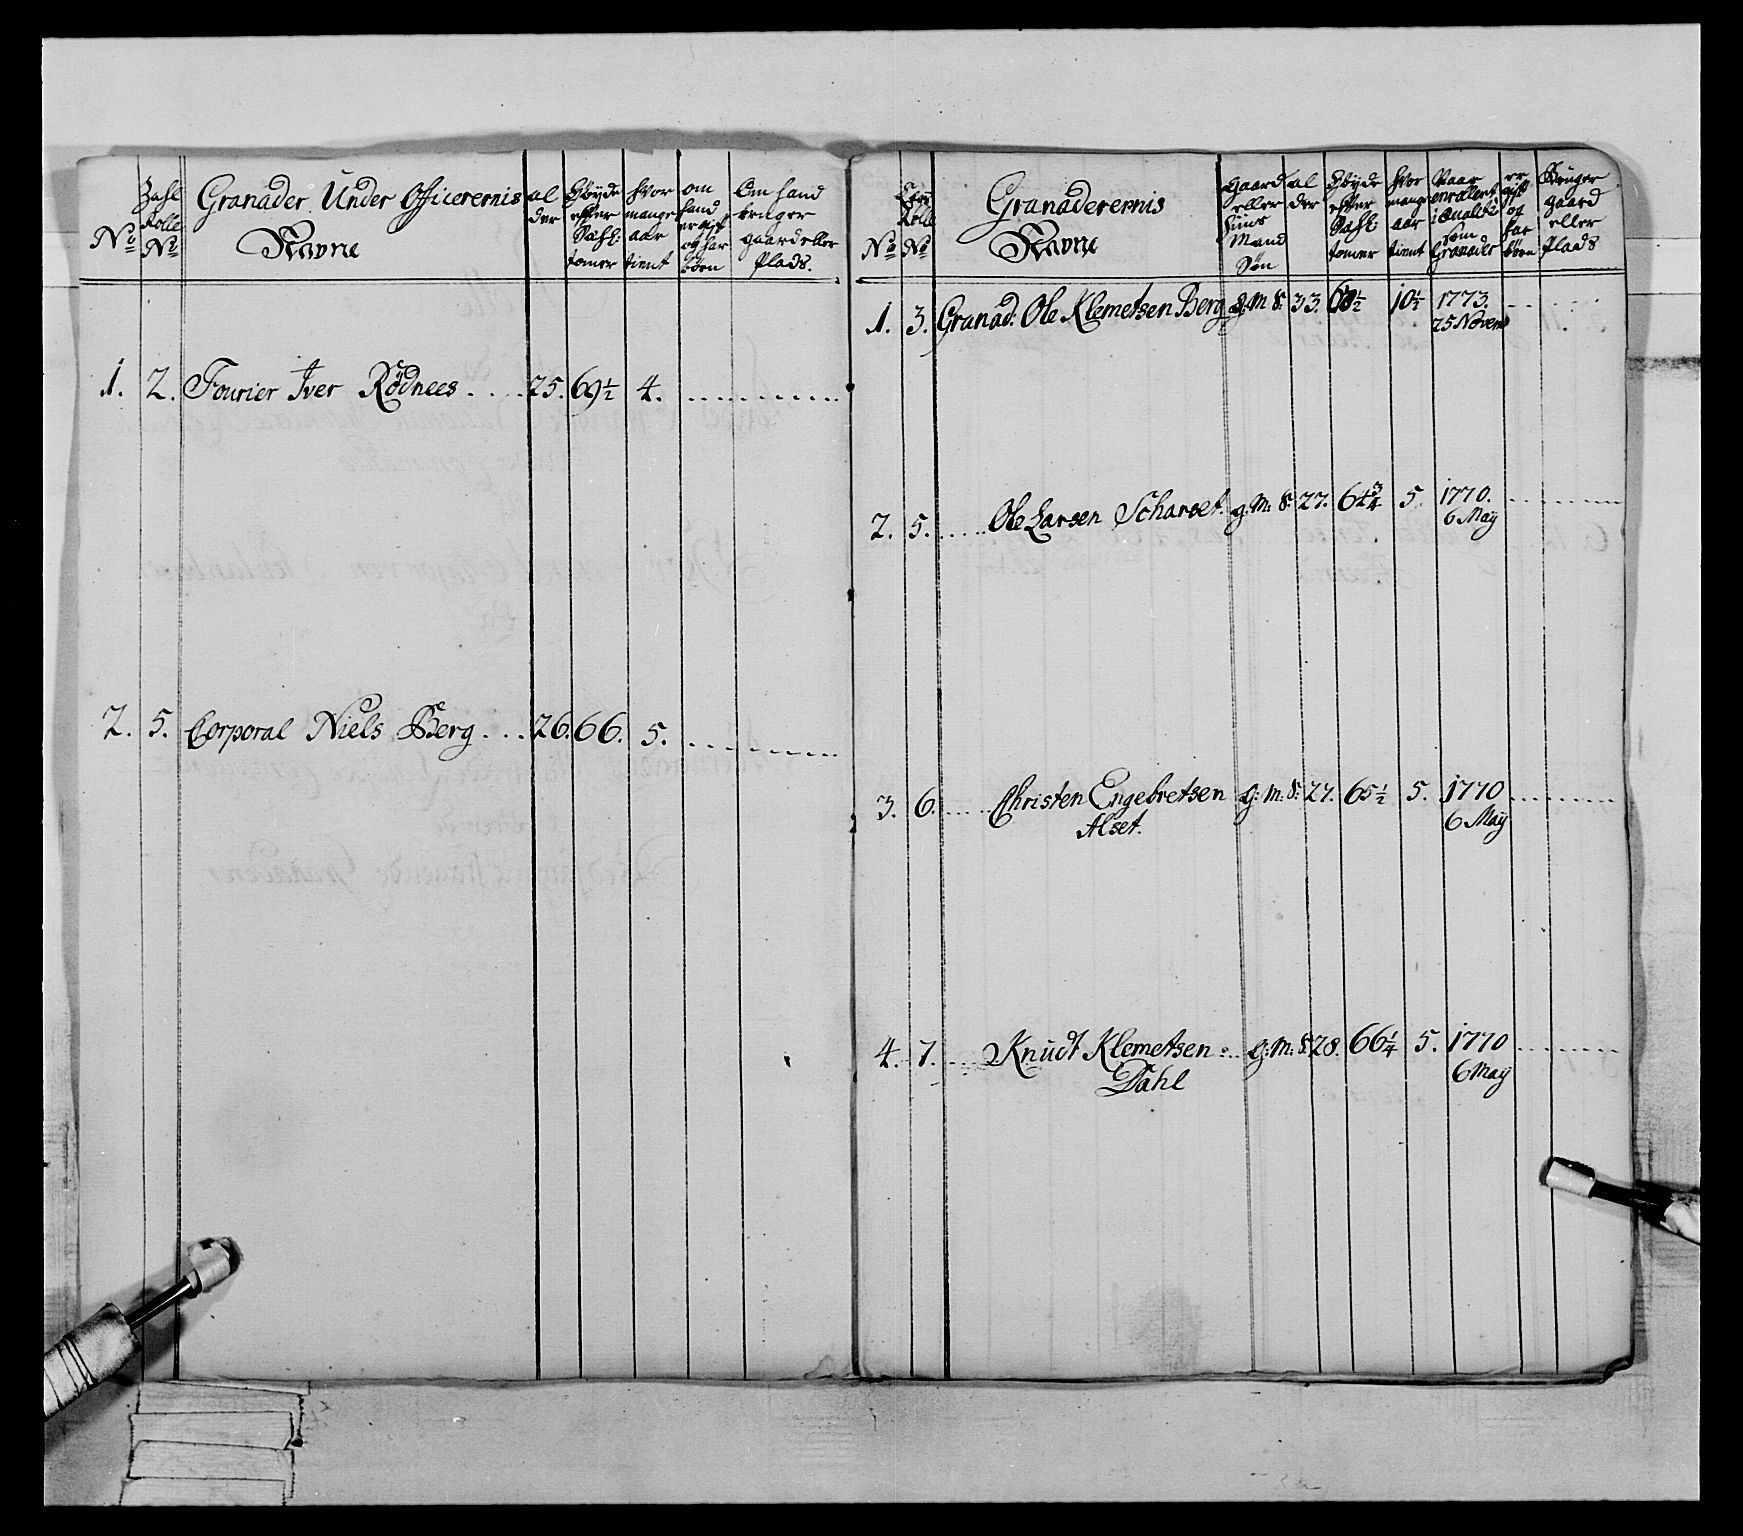 No
Zahl Rolle No
Granader Under Officerernis Navne
al der
Höyde efter Sahl: tomer
hvor mange aar tient
om hand er gift og har börn
Om hand bruger gaard eller Plads.
1. 2. Fourier Iver Rödnees .... 25. 69½ 4. ..........
2. 5. Corporal Niels Berg ... 26. 66. 5. ..........
No
Rolle No
Granaderernis Navne
Gaard eller Huus Mand Sön
al der
Höyde efter Sahl: tomer
hvor mange aar tient
Naar enrollert i Qualité som Granader
er gift og har börn
Bruger gaard eller Plads
1. 3. Granad: Ole Klemetsen Berg g: M S: 33. 10½ 1773.
25 Novem
2. 5. ..... Ole Larsen Scharset. g: M: S: 27. 64¾ 5. 1770. ..........
6 May
3. 6. ..... Christen Engebretsen g: M: S: 27. 65½ 5. 1770 ..........
Alset. 6 May
4. 7. .... Knudt Klemetsen ... g: M: S: 28. 66¼ 5. 1770 ..........
Dahl 6 May